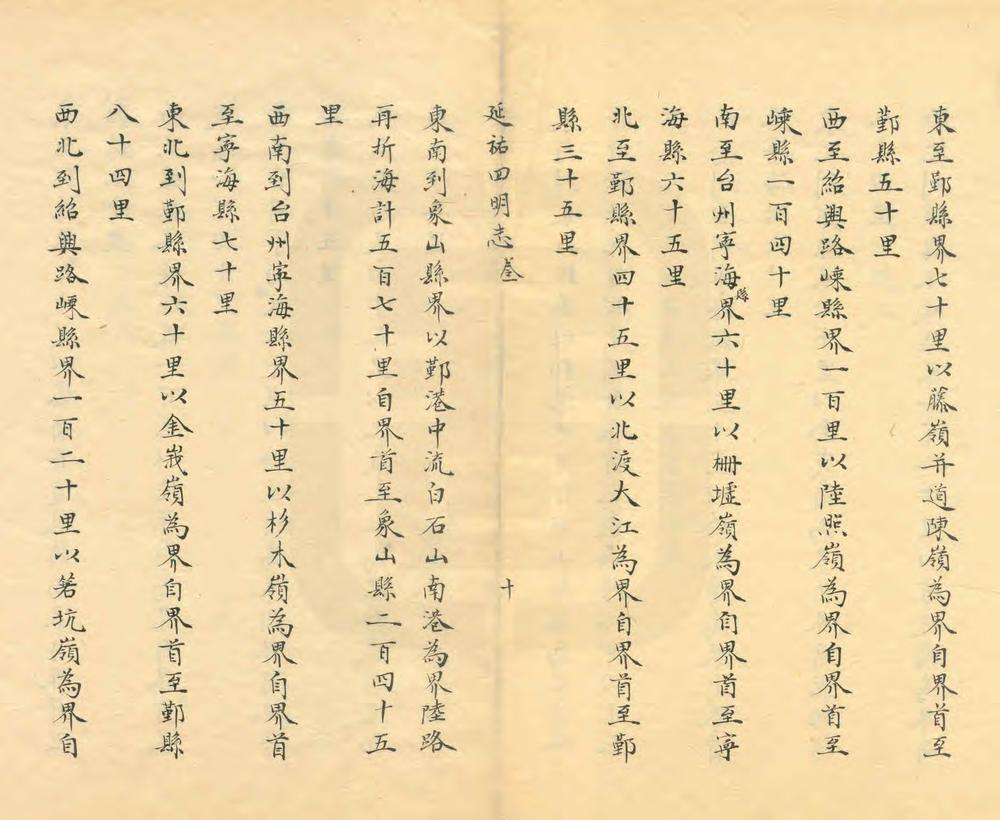 東至鄞縣界七十里以藤嶺并道陳嶺為界自界首至
鄞縣五十里
西至紹興路嵊縣界一百里以陸照嶺為界自界首至
嵊縣一百四十里
南至台州寧海縣界六十里以柵墟嶺為界自界首至寧
海縣六十五里
北至鄞縣界四十五里以北渡大江為界自界首至鄞
縣三十五里
延祐四明志 叁 十
東南到象山縣界以鄞港中流白石山南港為界陸路
再折海計五百七十里自界首至象山縣二百四十五
里
西南到台州寧海縣界五十里以杉木嶺為界自界首
至寧海縣七十里
東北到鄞縣界六十里以金峩嶺為界自界首至鄞縣
八十四里
西北到紹興路嵊縣界一百二十里以箬坑嶺為界自